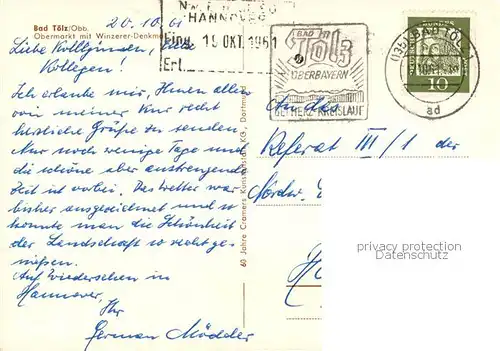 Bad Tölz/Obb.
Obermarkt mit Winzerer-Denkmal
20.10.61
Liebe Kolleginnen, liebe
Kollegen!
Ich erlaube mir, Ihnen allen
von meiner Kur recht
herzliche Grüße zu senden.
Nur noch wenige Tage und
die schöne aber anstrengende
Zeit ist vorbei. Das Wetter war
bisher ausgezeichnet und so
konnte man die Schönheit
der Landschaft so recht ge-
nießen.
Auf Wiedersehen in
Hannover,
Ihr
German
60 Jahre Cramers Kunstanstalt KG., Dortmund
HANNOVER
Eing. 19 OKT. 1961
Erl.
BAD
Tölz
OBERBAYERN
BEI HERZ-KREISLAUF
BAD TÖLZ
ad
10
An das
Referat III/1 der
privacy protection
Datenschutz